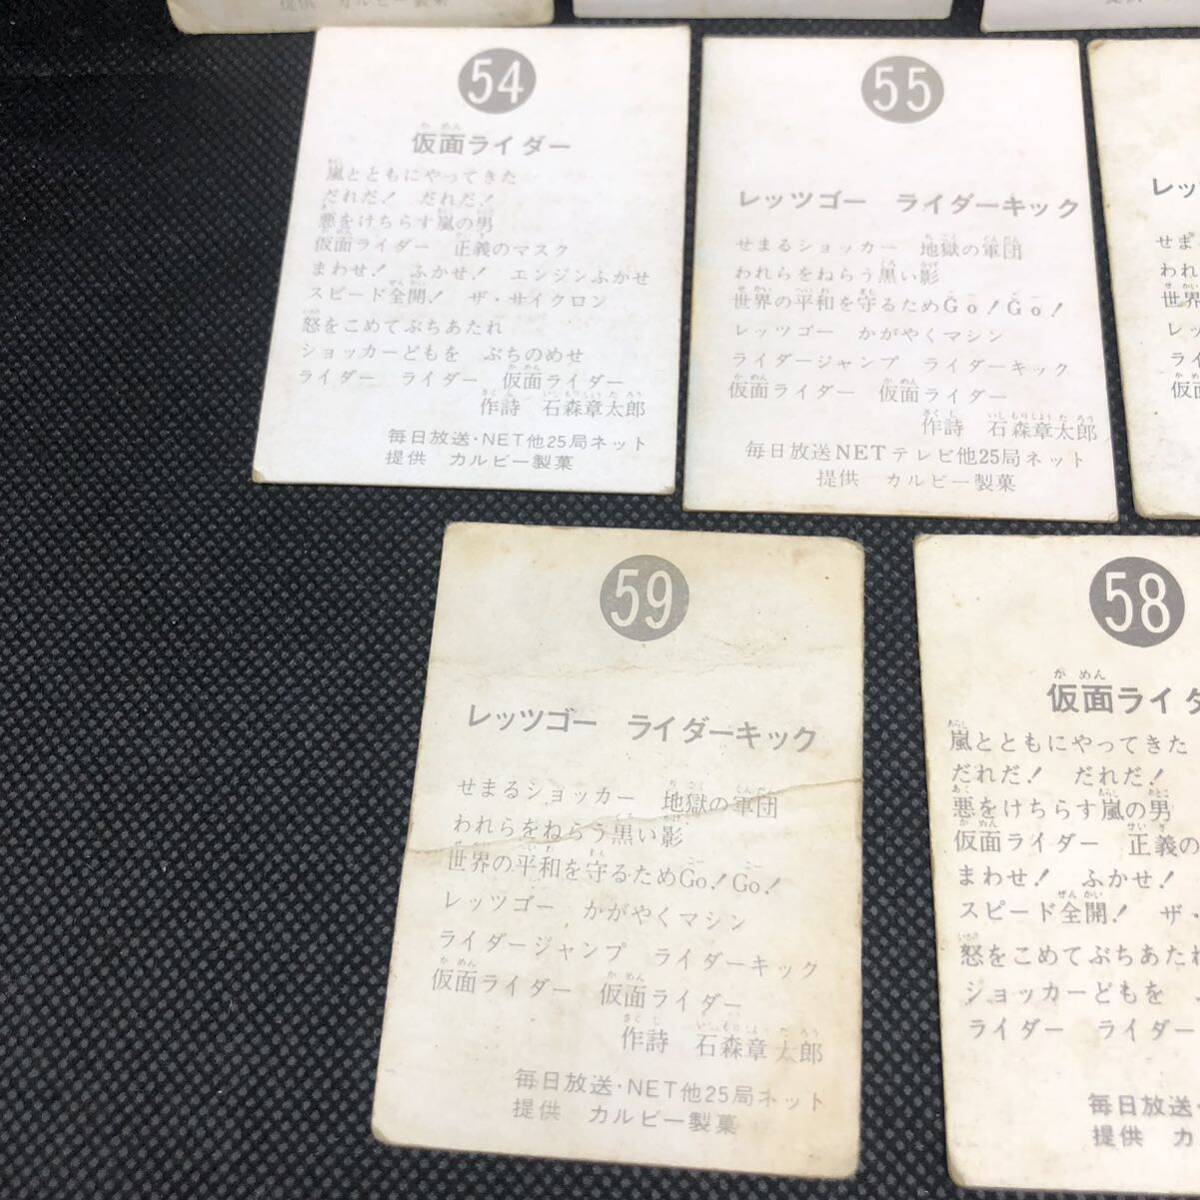 提供 カルビー製菓
54
仮面ライダー
嵐とともにやってきた
だれだ! だれだ!
悪をけちらす嵐の男
仮面ライダー 正義のマスク
まわせ! ふかせ! エンジンふかせ
スピード全開! ザ・サイクロン
怒をこめてぶちあたれ
ショッカーどもを ぶちのめせ
ライダー ライダー 仮面ライダー
作詩 石森章太郎
毎日放送・NET他25局ネット
提供 カルビー製菓
55
レッツゴー ライダーキック
せまるショッカー 地獄の軍団
われらをねらう黒い影
世界の平和を守るためGo! Go!
レッツゴー かがやくマシン
ライダージャンプ ライダーキック
仮面ライダー 仮面ライダー
作詩 石森章太郎
毎日放送NETテレビ他25局ネット
提供 カルビー製菓
レッ
せま
われ
世界
レッ
ライ
仮面
59
レッツゴー ライダーキック
せまるショッカー 地獄の軍団
われらをねらう黒い影
世界の平和を守るためGo! Go!
レッツゴー かがやくマシン
ライダージャンプ ライダーキック
仮面ライダー 仮面ライダー
作詩 石森章太郎
毎日放送・NET他25局ネット
提供 カルビー製菓
58
仮面ライダ
嵐とともにやってきた
だれだ! だれだ!
悪をけちらす嵐の男
仮面ライダー 正義の
まわせ! ふかせ!
スピード全開! ザ・
怒をこめてぶちあたれ
ショッカーどもを
ライダー ライダー
毎日放送・
提供 カ